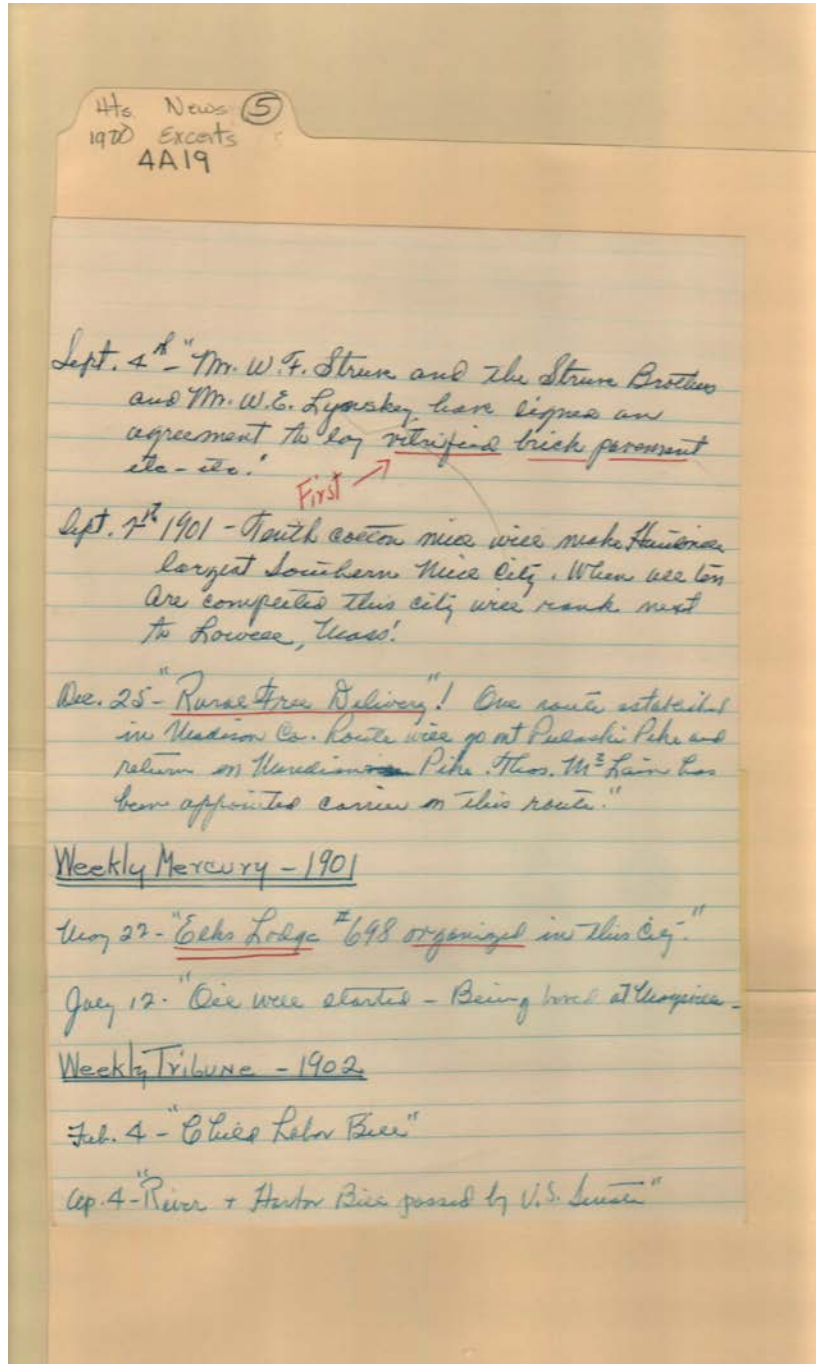 Hts. News ⑤
1900 Excerts
4A19
Sept. 4th - "Mr. W. F. Struve and the Struve Brothers
and Mr. W. E. Lynskey, have signed an
agreement to lay vitrified brick pavement
etc - etc."
First
Sept. 1901 - Tenth cotton mill will make Huntsville
largest Southern Mill City. When all ten
are completed this city will rank next
to Lowell, Mass!
Dec. 25 - "Rural Free Delivery"! One route established
in Madison Co. Route will go out Pulaski Pike and
return on Meridian Pike. Thos. McLain has
been appointed carrier on this route."
Weekly Mercury - 1901
May 22 - "Elks Lodge #698 organized in this City."
July 12 - "Oil well started - Being bored at Maysville -
Weekly Tribune - 1902
Feb. 4 - "Child Labor Bill"
Ap. 4 - "River + Harbor Bill passed by U.S. Senate"